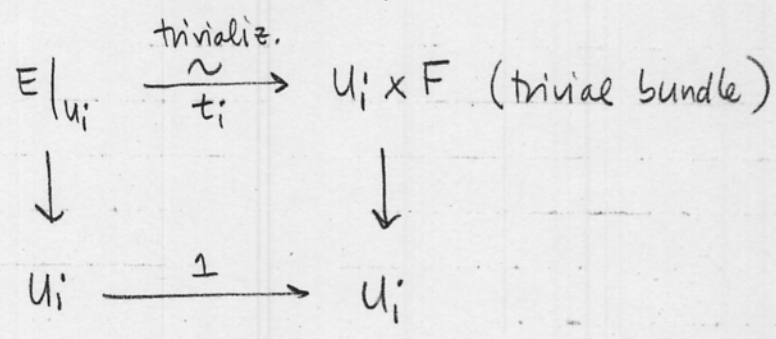 trivializ.
E|_{U_i} ~ U_i × F (trivial bundle)
t_i
1
U_i U_i